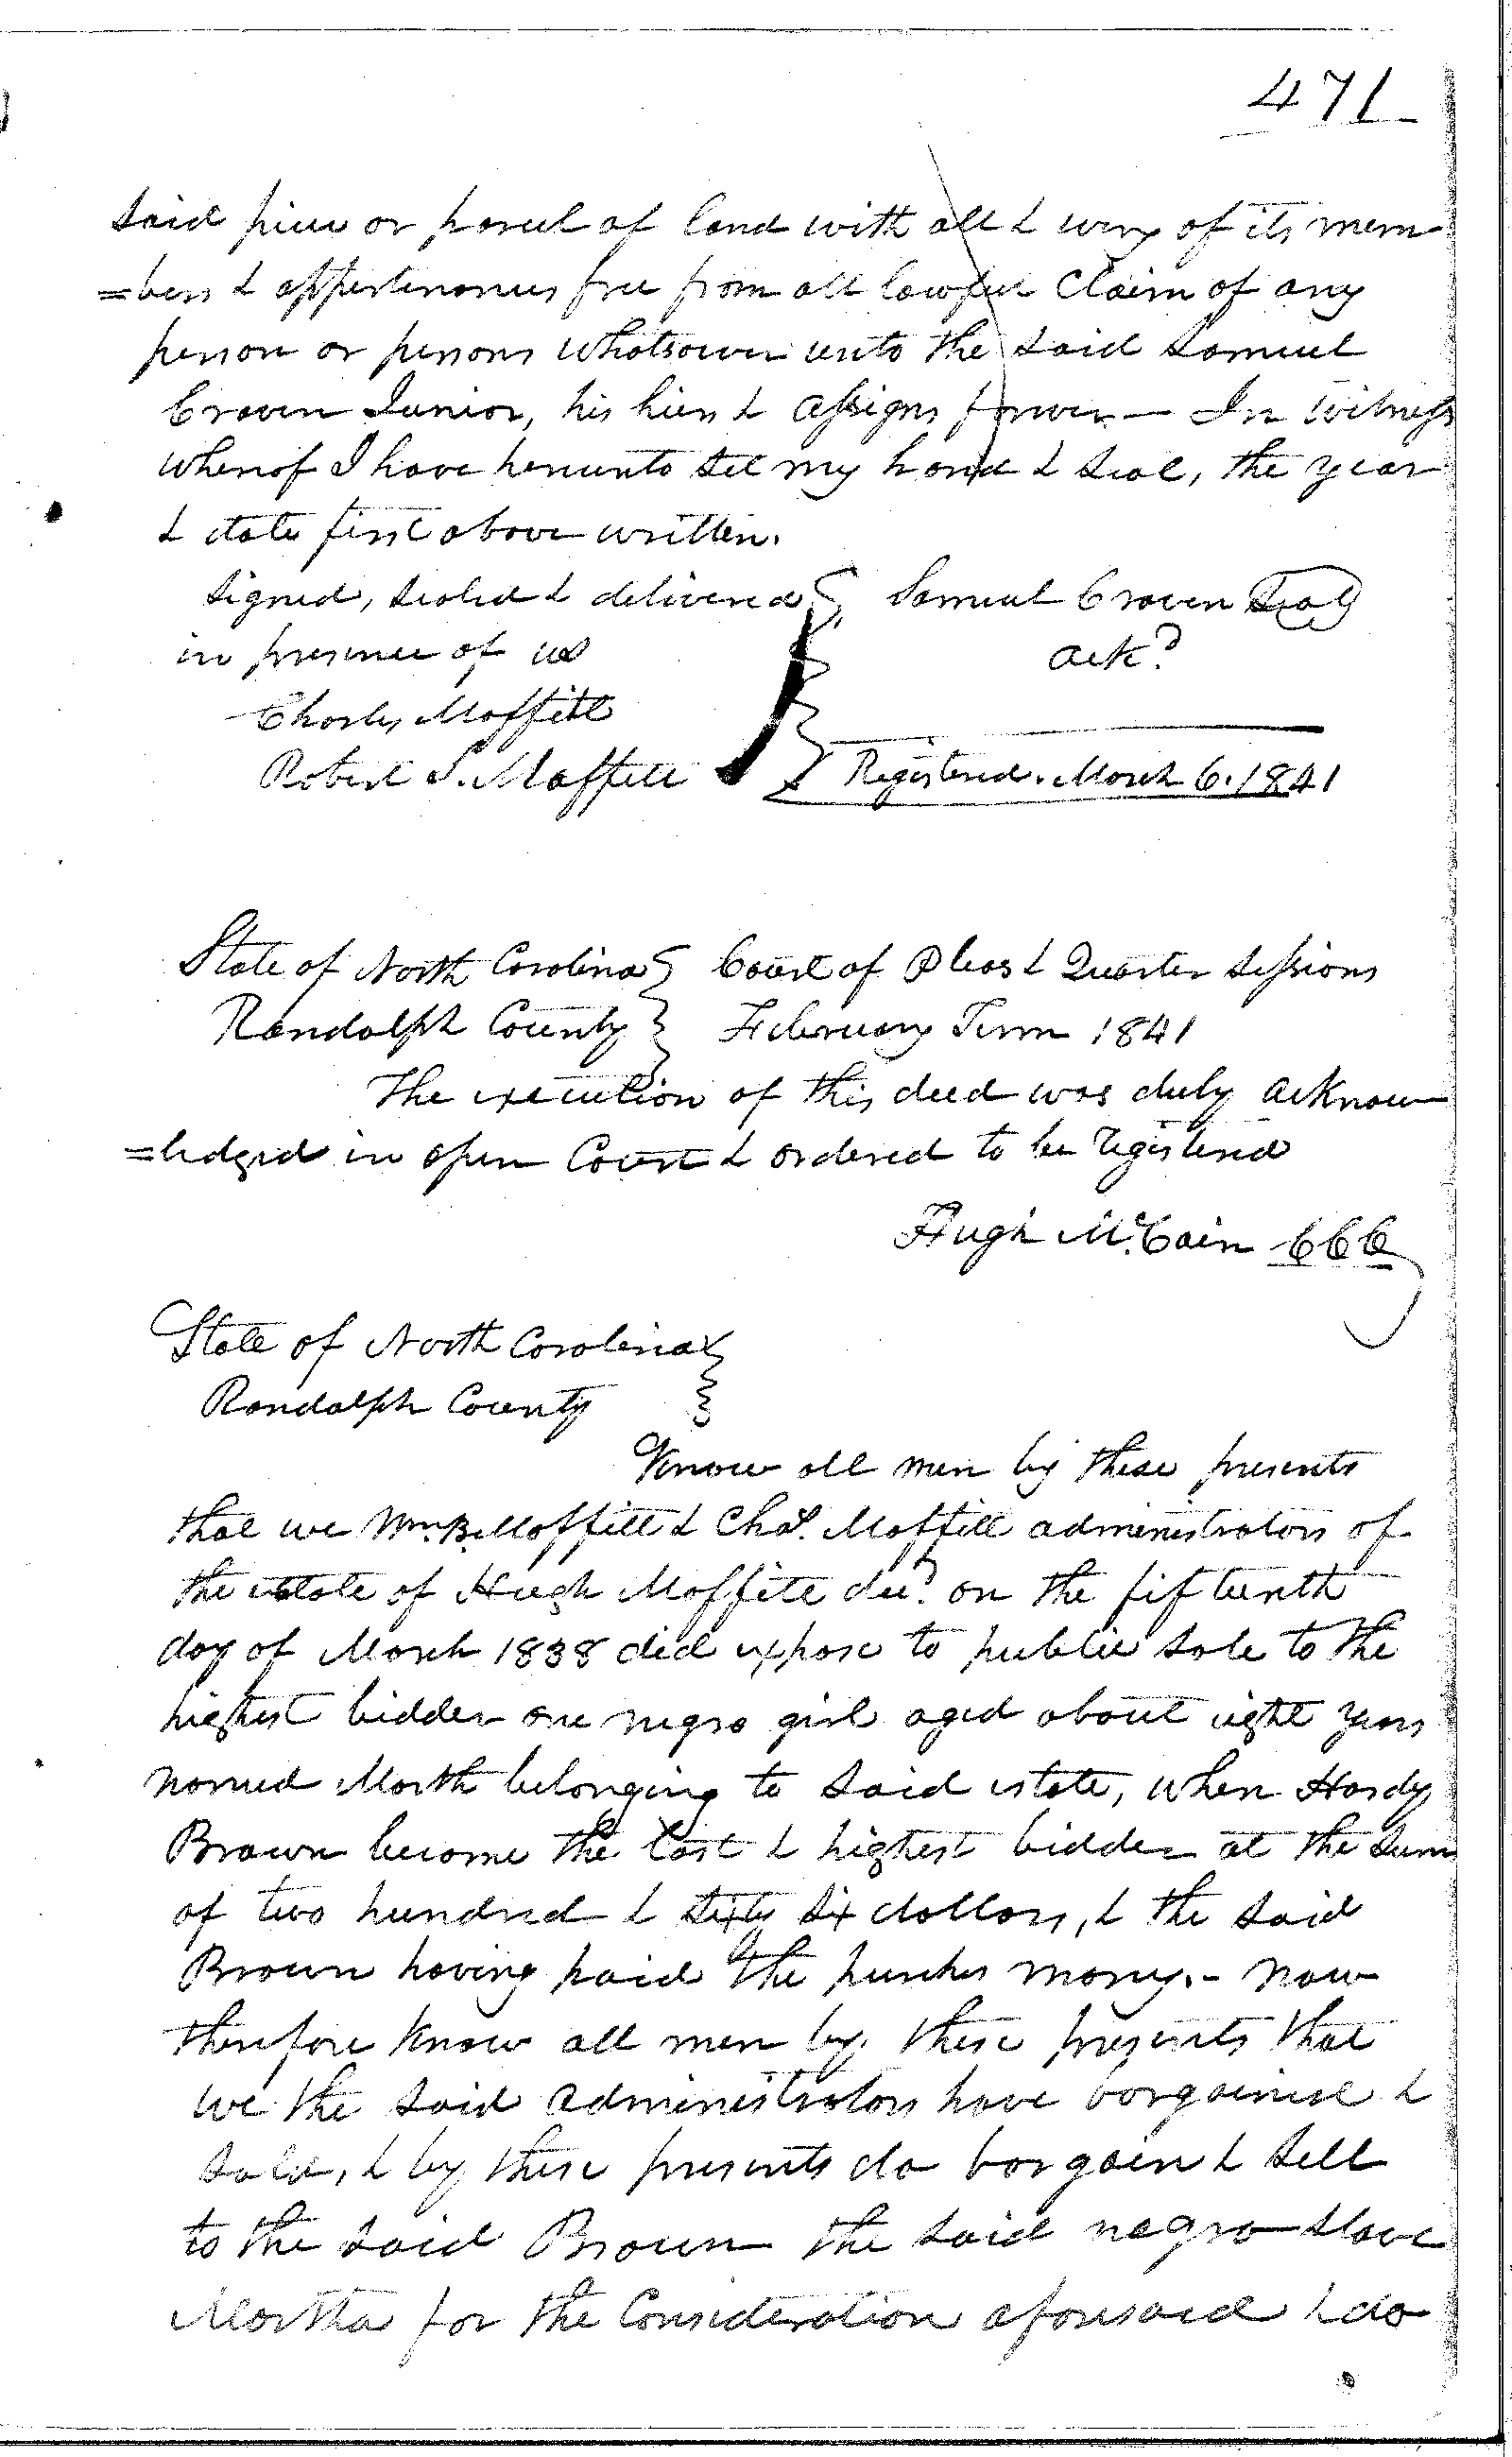 471
said piece or parcel of land with all & every of its mem
=bers & appertenances free from all lawful claim of any
person or persons whatsoever unto the said Samuel
Craven Junior, his heirs & assigns forever — In witness
whereof I have hereunto set my hand & seal, the year
& date first above written.
Signed, sealed & delivered Samuel Craven Seal
in presence of us Ack.d
Charles Moffitt
Robert S. Moffitt Registered. March 6. 1841
State of North Carolina Court of Pleas & Quarter Sessions
Randolph County February Term 1841
The execution of this deed was duly acknow
=ledged in open Court & ordered to be registered
Hugh McCain CCC
State of North Carolina
Randolph County
Know all men by these presents
that we Wm. B. Moffitt & Chas. Moffitt administrators of
the estate of Hugh Moffitt decd. on the fifteenth
day of March 1838 did expose to public sale to the
highest bidder one negro girl aged about eight years
named Marth belonging to said estate, when Hardy
Brown become the last & highest bidder at the sum
of two hundred & sixty six dollars, & the said
Brown having paid the purches money. - Now
therefore Know all men by these presents that
we the said administrators have bargained &
sold, & by these presents do bargain & sell
to the said Brown the said negro slave
Martha for the Consideration aforesaid & do